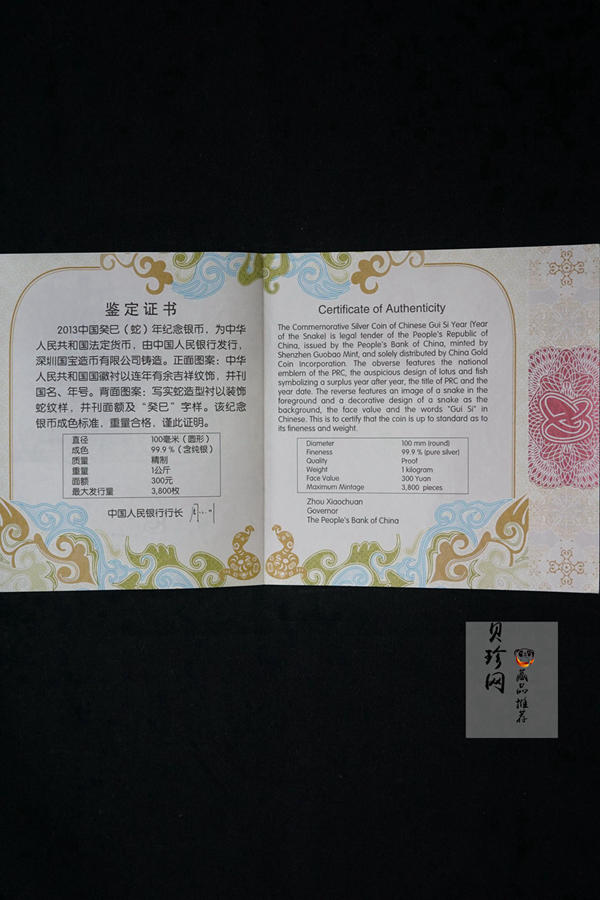 鉴定证书
2013中国癸巳（蛇）年纪念银币，为中华
人民共和国法定货币，由中国人民银行发行，
深圳国宝造币有限公司铸造。正面图案：中华
人民共和国国徽衬以连年有余吉祥纹饰，并刊
国名、年号。背面图案：写实蛇造型衬以装饰
蛇纹样，并刊面额及“癸巳”字样。该纪念
银币成色标准，重量合格，谨此证明。
直径 100毫米（圆形）
成色 99.9％（含纯银）
质量 精制
重量 1公斤
面额 300元
最大发行量 3,800枚
中国人民银行行长
Certificate of Authenticity
The Commemorative Silver Coin of Chinese Gui Si Year (Year
of the Snake) is legal tender of the People's Republic of
China, issued by the People's Bank of China, minted by
Shenzhen Guobao Mint, and solely distributed by China Gold
Coin Incorporation. The obverse features the national
emblem of the PRC, the auspicious design of lotus and fish
symbolizing a surplus year after year, the title of PRC and the
year date. The reverse features an image of a snake in the
foreground and a decorative design of a snake as the
background, the face value and the words "Gui Si" in
Chinese. This is to certify that the coin is up to standard as to
its fineness and weight.
Diameter 100 mm (round)
Fineness 99.9 % (pure silver)
Quality Proof
Weight 1 kilogram
Face Value 300 Yuan
Maximum Mintage 3,800 pieces
Zhou Xiaochuan
Governor
The People's Bank of China
贝珍网
藏品推荐